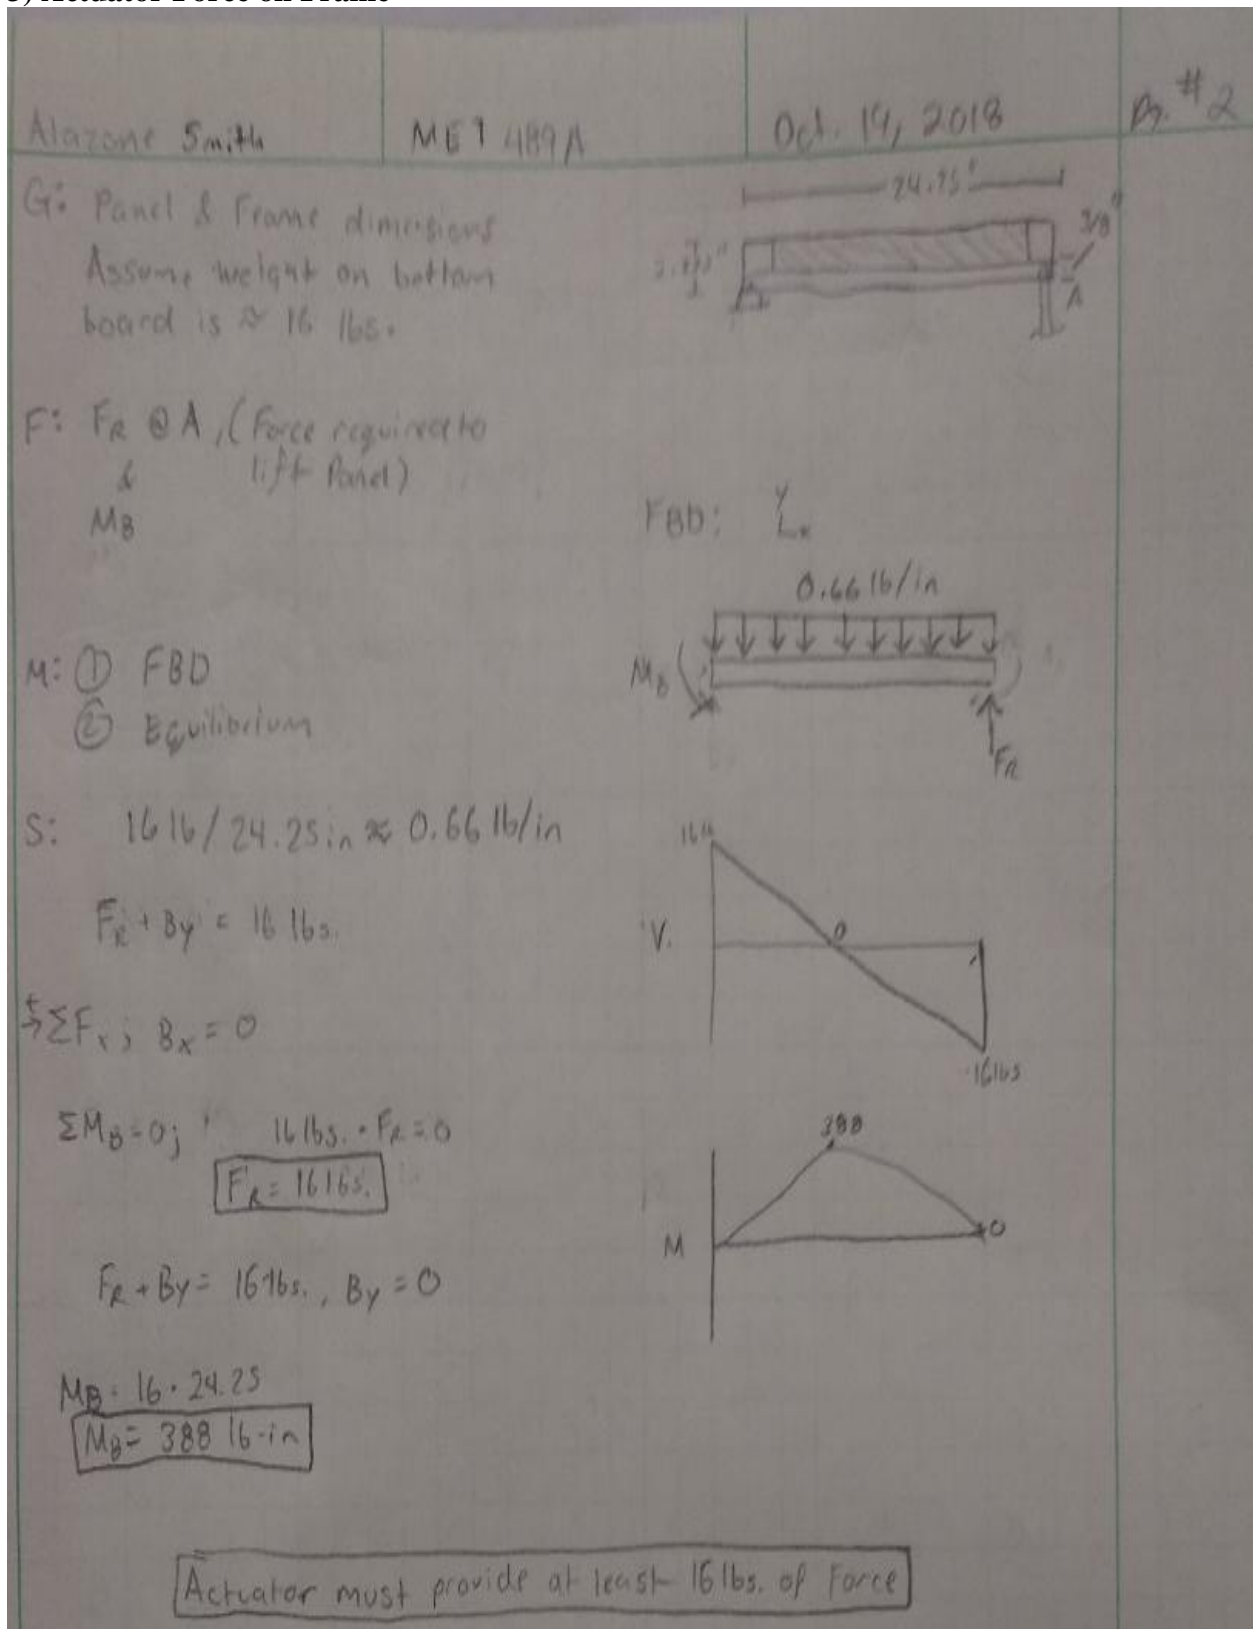 3) Actuator Force on Frame
Alazone Smith MET 489A Oct. 19, 2018 Pg. #2
G: Panel & Frame dimensions
Assume weight on bottom
board is ≈ 16 lbs.
24.25"
3/8"
A
F: FR @ A, (Force required to
& lift Panel)
MB
FBD: Y x
0.66 lb/in
MB
FR
M: ① FBD
② Equilibrium
S: 16 lb/24.25in ≈ 0.66 lb/in
FR + By = 16 lbs.
+→ΣFx; Bx = 0
ΣMB=0; 16 lbs. - FR = 0
FR = 16 lbs.
FR + By = 16 lbs., By = 0
MB = 16 · 24.25
MB = 388 lb-in
16lb
V.
0
-16lbs
388
M
0
Actuator must provide at least 16 lbs. of Force